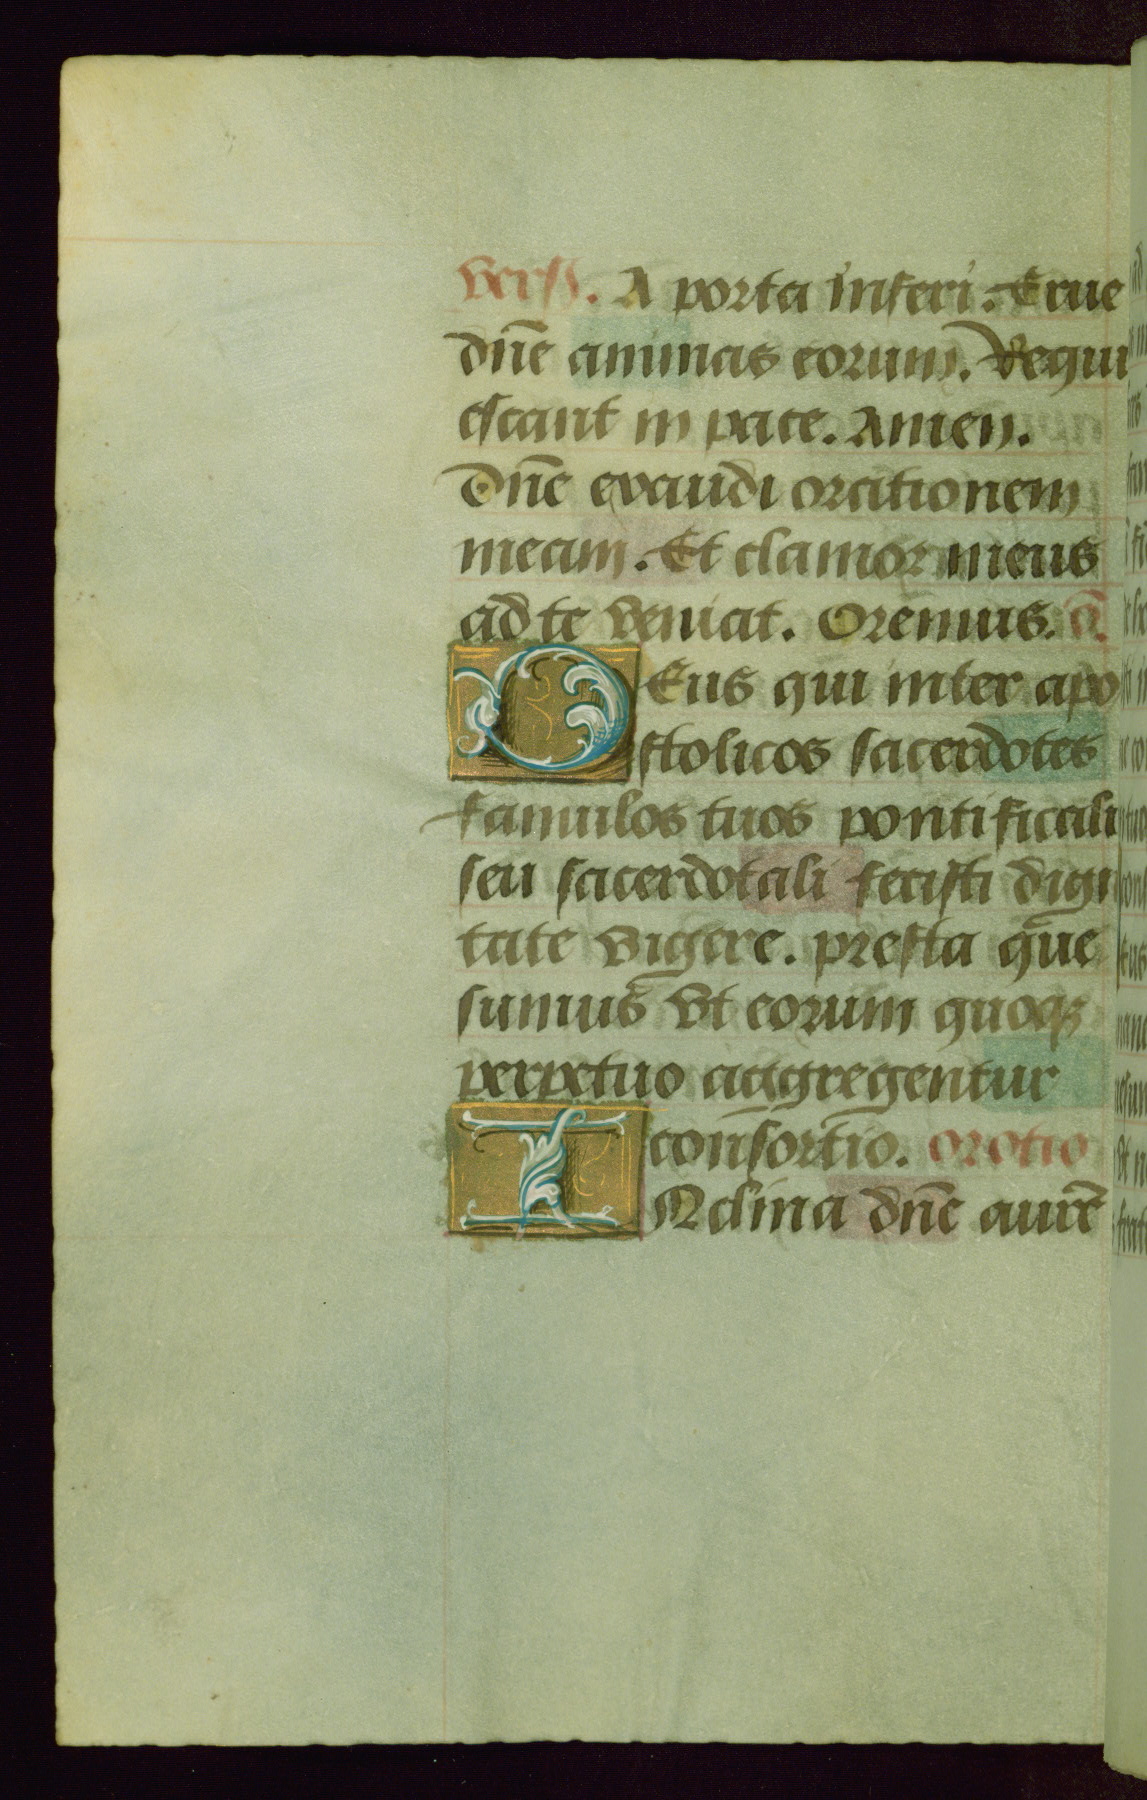 vers̄. A porta inferi. Erue
dn̄e animas eorum. Requi
escant in pace. Amen.
Dn̄e exaudi orationem
meam. Et clamor meus
ad te veniat. Oremus. or̄.
Deus qui inter apo
stolicos sacerdotes
famulos tuos pontificali
seu sacerdotali fecisti digni
tate vigere. presta que
sumus vt eorum quoqꝫ
perpetuo aggregentur
consortio. orotio
INclina dn̄e aurē